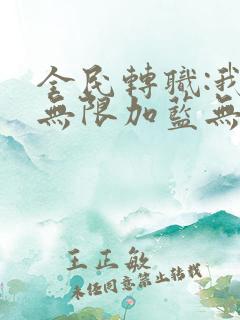 全民轉職:我
無限加藍無
王正敏
未经同意禁止转载